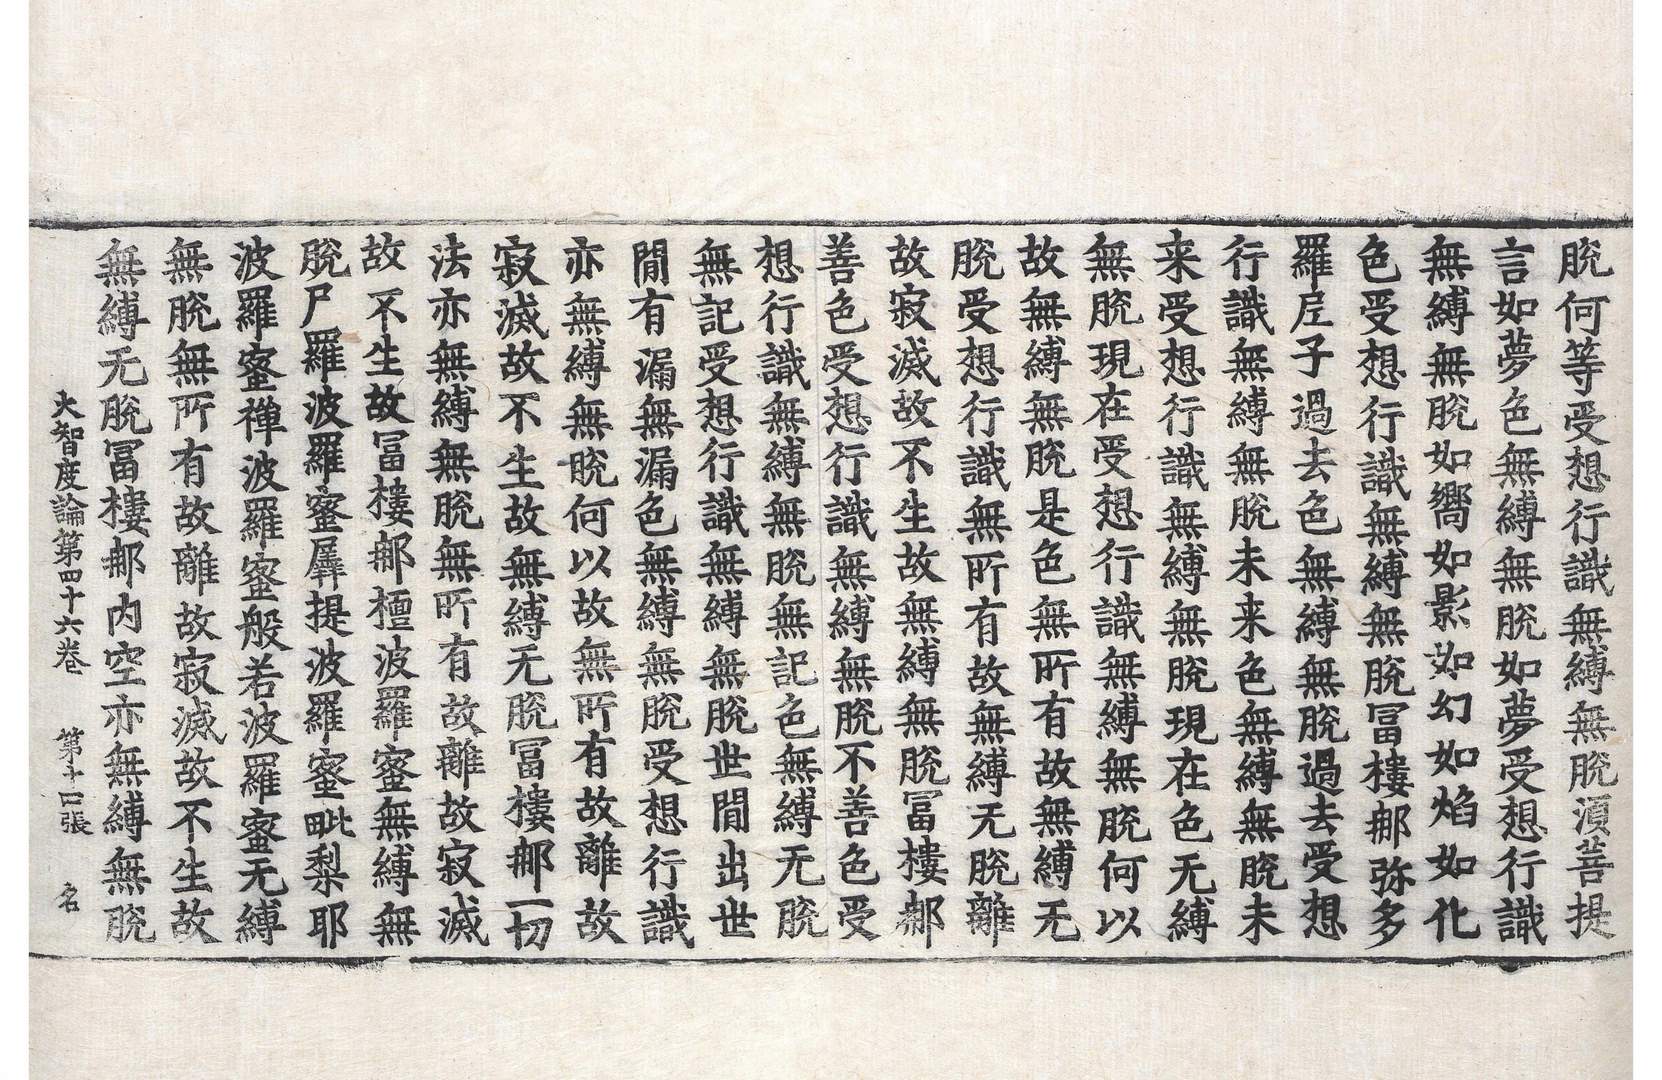 脫何等受想行識無縛無脫湏菩提
言如夢色無縛無脫如夢受想行識
無縛無脫如嚮如影如幻如焰如化
色受想行識無縛無脫冨樓䢴弥多
羅𡰱子過去色無縛無脫過去受想
行識無縛無脫未来色無縛無脫未
来受想行識無縛無脫現在色无縛
無脫現在受想行識無縛無脫何以
故無縛無脫是色無所有故無縛无
脫受想行識無所有故無縛无脫離
故寂滅故不生故無縛無脫冨樓䢴
善色受想行識無縛無脫不善色受
想行識無縛無脫無記色無縛无脫
無記受想行識無縛無脫世間出世
間有漏無漏色無縛無脫受想行識
亦無縛無脫何以故無所有故離故
寂滅故不生故無縛无脫冨樓䢴一切
法亦無縛無脫無所有故離故寂滅
故不生故冨樓䢴檀波羅蜜無縛無
脫尸羅波羅蜜羼提波羅蜜毗梨耶
波羅蜜禅波羅蜜般若波羅蜜无縛
無脫無所有故離故寂滅故不生故
無縛无脫冨樓䢴内空亦無縛無脫
大智度論第四十六卷 第十口張 名